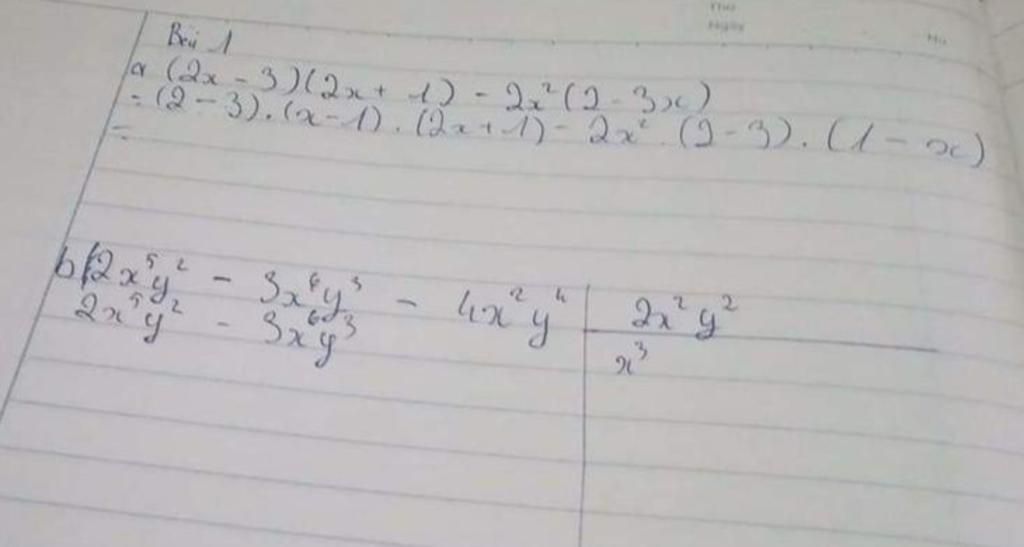 Thứ
Ngày
No
Bài 1
a, (2x - 3)(2x + 1) - 2x²(2 - 3x)
= (2 - 3).(x - 1).(2x + 1) - 2x².(2 - 3).(1 - x)
=
b, (2x⁵y² - 3x⁶y³ - 4x²y⁴ | 2x²y²
2x⁵y² - 3x⁶y³ | x³